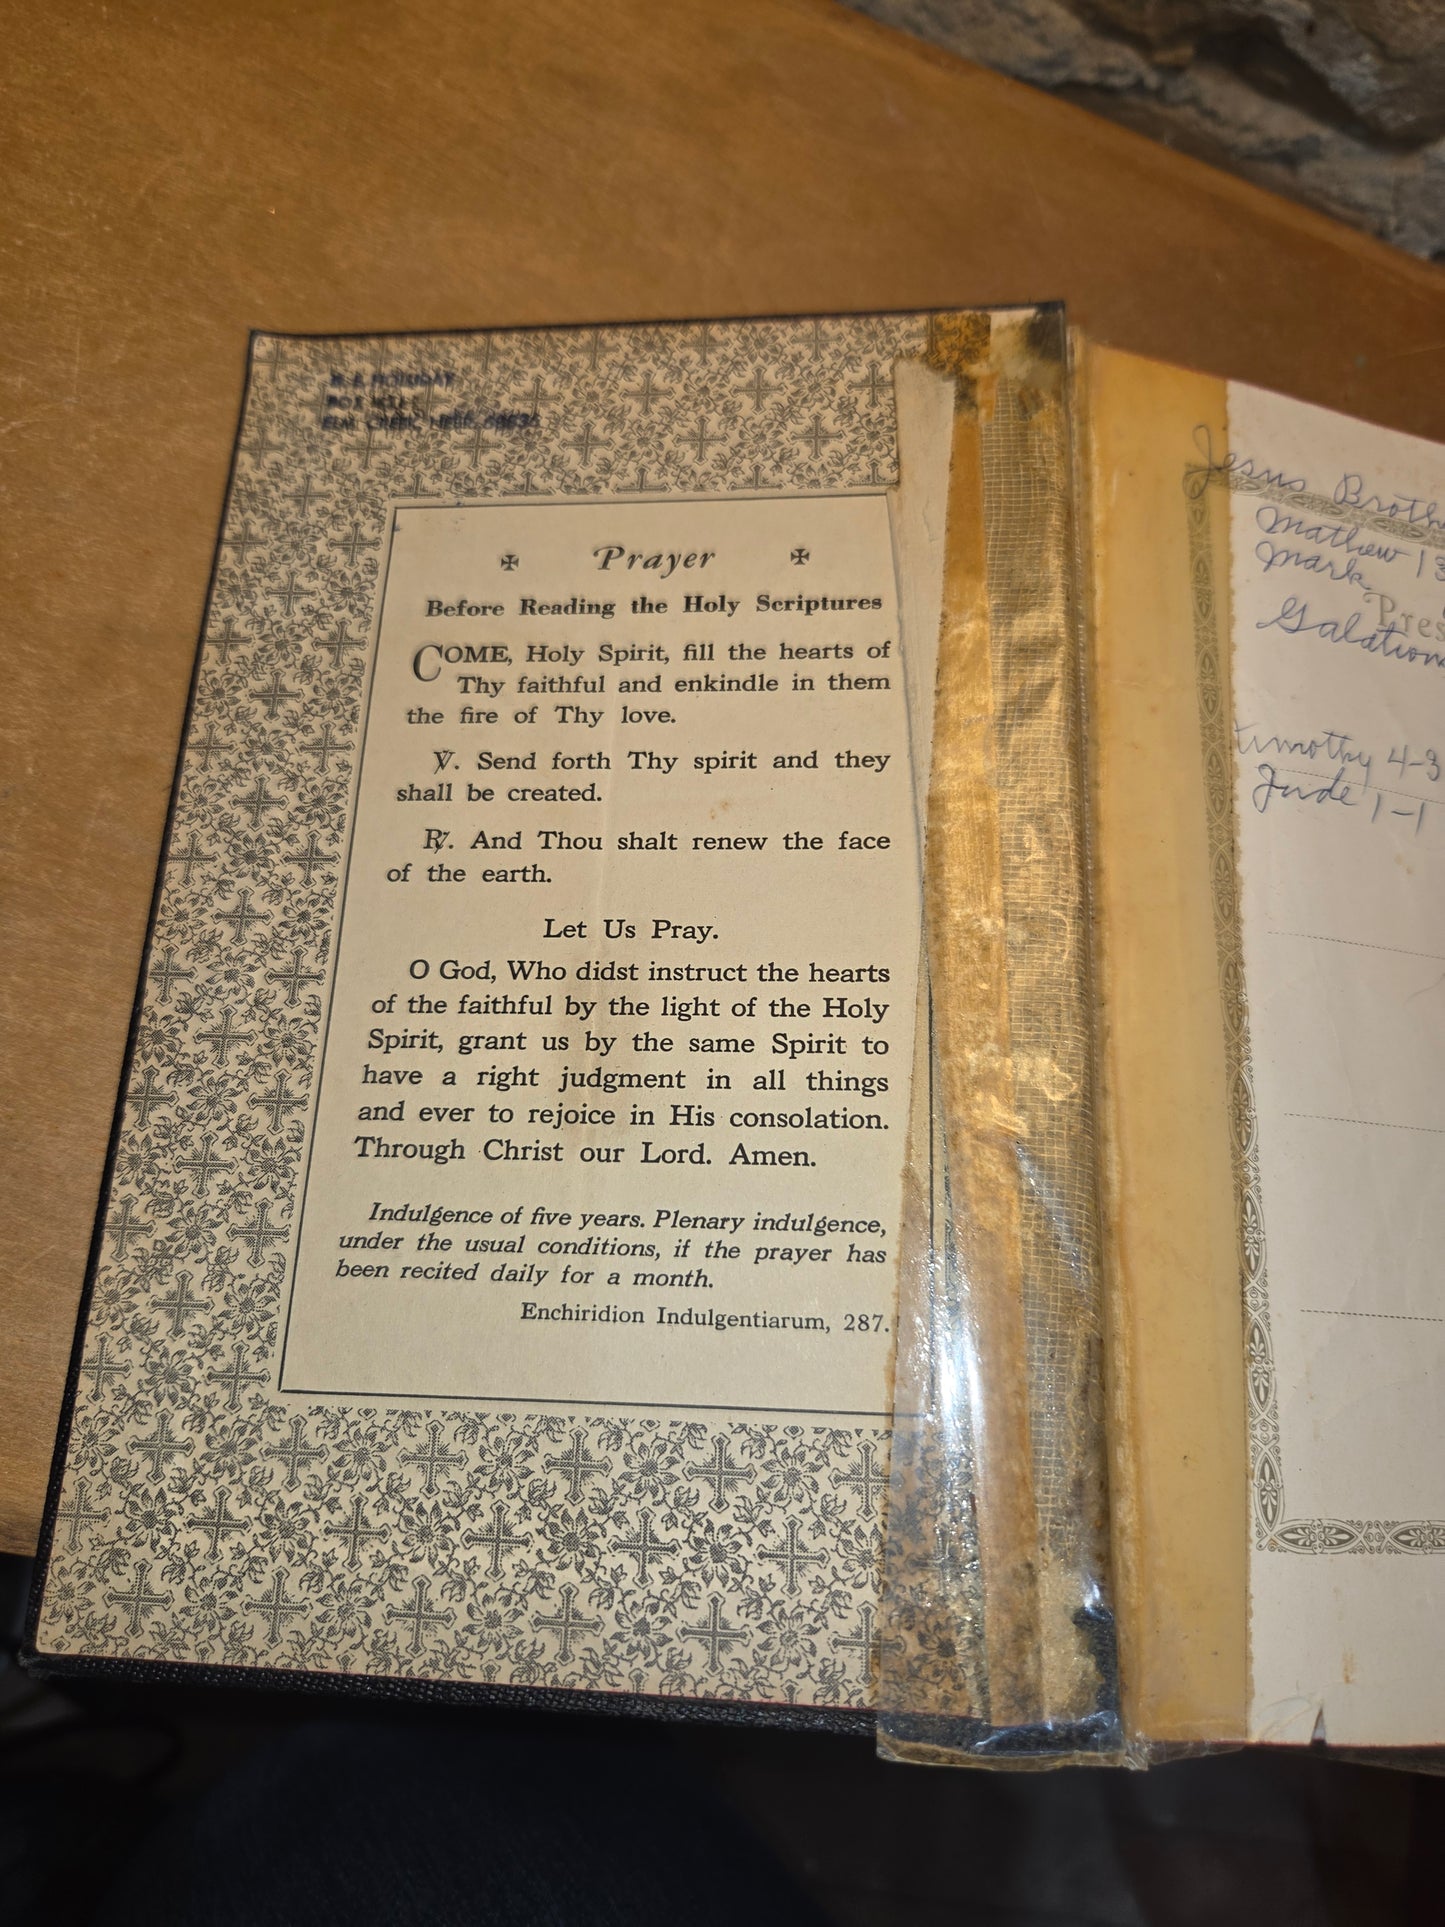 ELM CREEK, NEBR. 68836
✠ Prayer ✠
Before Reading the Holy Scriptures
COME, Holy Spirit, fill the hearts of
Thy faithful and enkindle in them
the fire of Thy love.
℣. Send forth Thy spirit and they
shall be created.
℟. And Thou shalt renew the face
of the earth.
Let Us Pray.
O God, Who didst instruct the hearts
of the faithful by the light of the Holy
Spirit, grant us by the same Spirit to
have a right judgment in all things
and ever to rejoice in His consolation.
Through Christ our Lord. Amen.
Indulgence of five years. Plenary indulgence,
under the usual conditions, if the prayer has
been recited daily for a month.
Enchiridion Indulgentiarum, 287.
Jesus Broth
Mathew 13
Mark
Pres
Galation
timothy 4-3
Jude 1-1